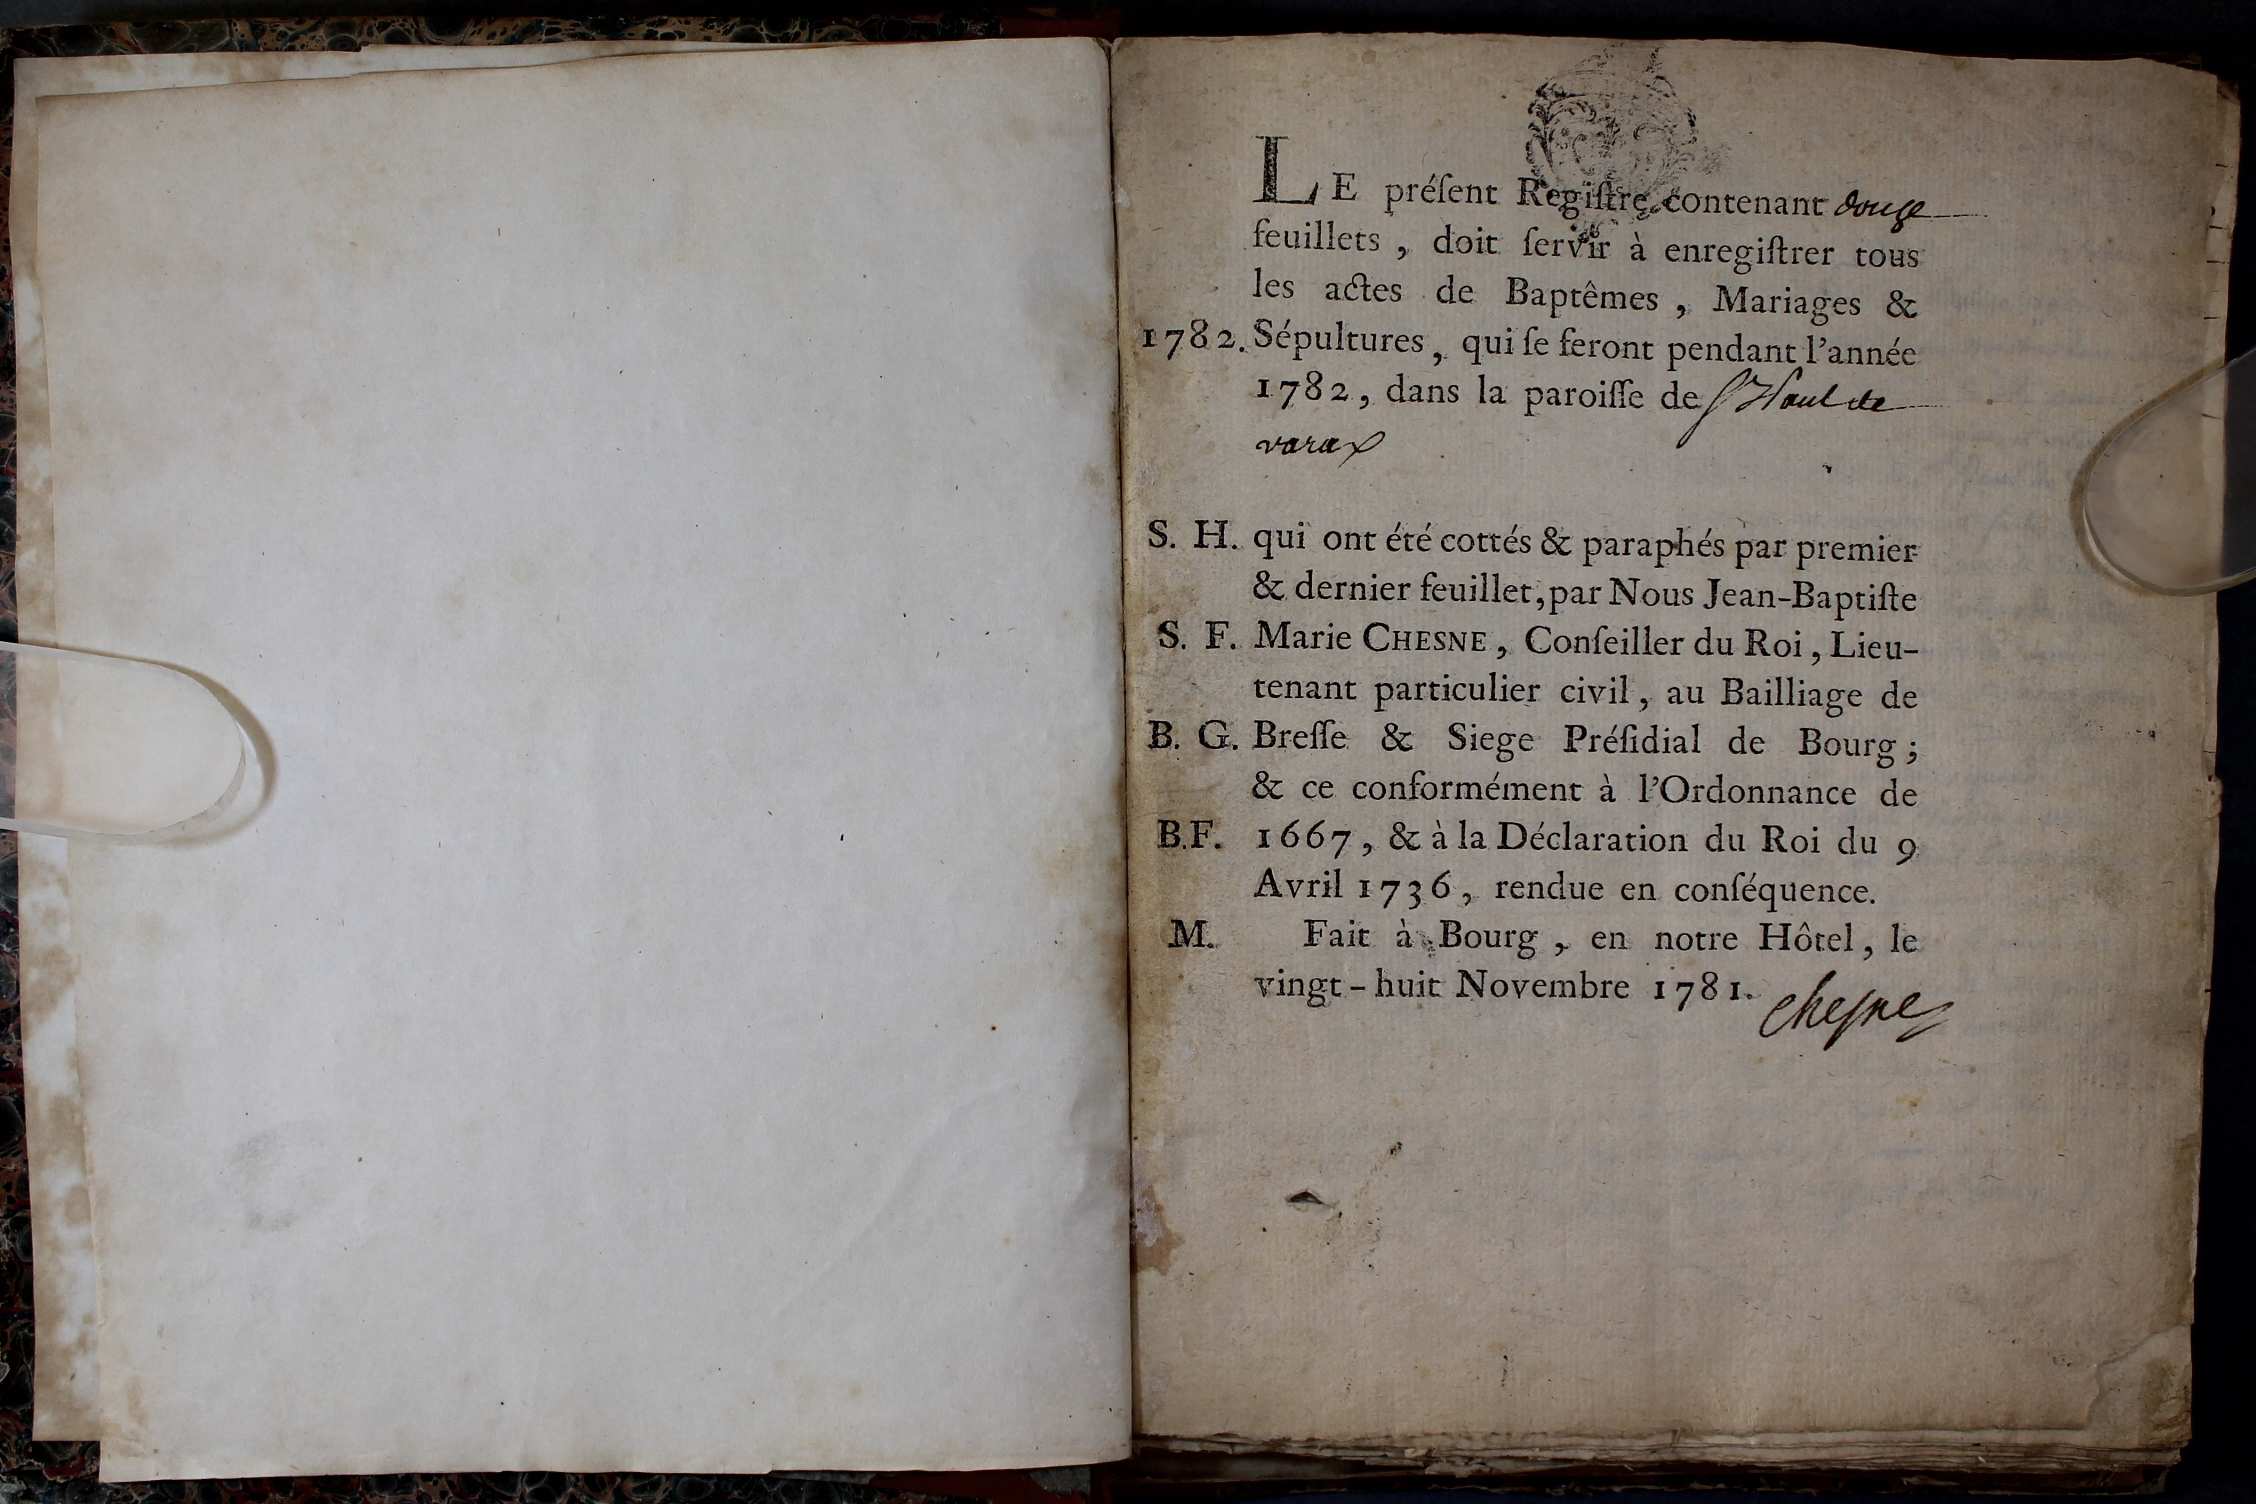 LE préſent Regiſtre contenant douze
feuillets, doit ſervir à enregiſtrer tous
les actes de Baptêmes, Mariages &
1782. Sépultures, qui ſe feront pendant l'année
1782, dans la paroiſſe de St Paul de
varax
S. H. qui ont été cottés & paraphés par premier
& dernier feuillet, par Nous Jean-Baptiſte
S. F. Marie CHESNE, Conſeiller du Roi, Lieu-
tenant particulier civil, au Bailliage de
B. G. Breſſe & Siege Préſidial de Bourg;
& ce conformément à l'Ordonnance de
B.F. 1667, & à la Déclaration du Roi du 9
Avril 1736, rendue en conſéquence.
M. Fait à Bourg, en notre Hôtel, le
vingt-huit Novembre 1781.
Cheſne